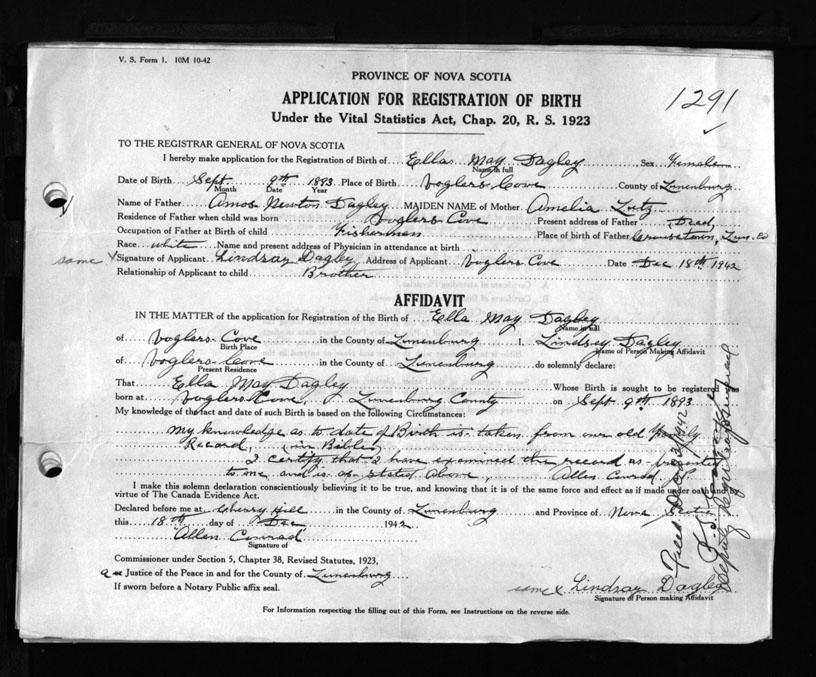 V. S. Form 1. 10M 10-42
PROVINCE OF NOVA SCOTIA
APPLICATION FOR REGISTRATION OF BIRTH
1291
Under the Vital Statistics Act, Chap. 20, R. S. 1923
TO THE REGISTRAR GENERAL OF NOVA SCOTIA
I hereby make application for the Registration of Birth of Ella May Dagley Sex Female
Name in full
Date of Birth Sept 9th 1893 Place of Birth Voglers Cove County of Lunenburg
Month Date Year
Name of Father Amos Newton Dagley MAIDEN NAME of Mother Amelia Lutz
Residence of Father when child was born Voglers Cove Present address of Father Dead
Occupation of Father at Birth of child Fisherman Place of birth of Father
Race white Name and present address of Physician in attendance at birth
same x Signature of Applicant Lindsay Dagley Address of Applicant Voglers Cove Date Dec 18th 1942
Relationship of Applicant to child Brother
AFFIDAVIT
IN THE MATTER of the application for Registration of the Birth of Ella May Dagley
Name in full
of Voglers Cove in the County of Lunenburg I, Lindsey Dagley
Birth Place Name of Person Making Affidavit
of Voglers Cove in the County of Lunenburg do solemnly declare:
Present Residence
That Ella May Dagley Whose Birth is sought to be registered
born at Voglers Cove, Lunenburg County on Sept 9th 1893
My knowledge of the fact and date of such Birth is based on the following Circumstances:
My knowledge as to date of Birth is taken from our old Family
Record, (in Bible)
I certify that I have examined the record as presented
to me and is as stated above, Allen Conrad J.P.
I make this solemn declaration conscientiously believing it to be true, and knowing that it is of the same force and effect as if made under oath and by
virtue of The Canada Evidence Act.
Declared before me at Cherry Hill in the County of Lunenburg and Province of Nova Scotia
this 18th day of Dec 1942
Allen Conrad
Signature of
Commissioner under Section 5, Chapter 38, Revised Statutes, 1923,
a Justice of the Peace in and for the County of Lunenburg
If sworn before a Notary Public affix seal.
same x Lindsay Dagley
Signature of Person making Affidavit
For Information respecting the filling out of this Form, see Instructions on the reverse side.
Deputy Registrar General